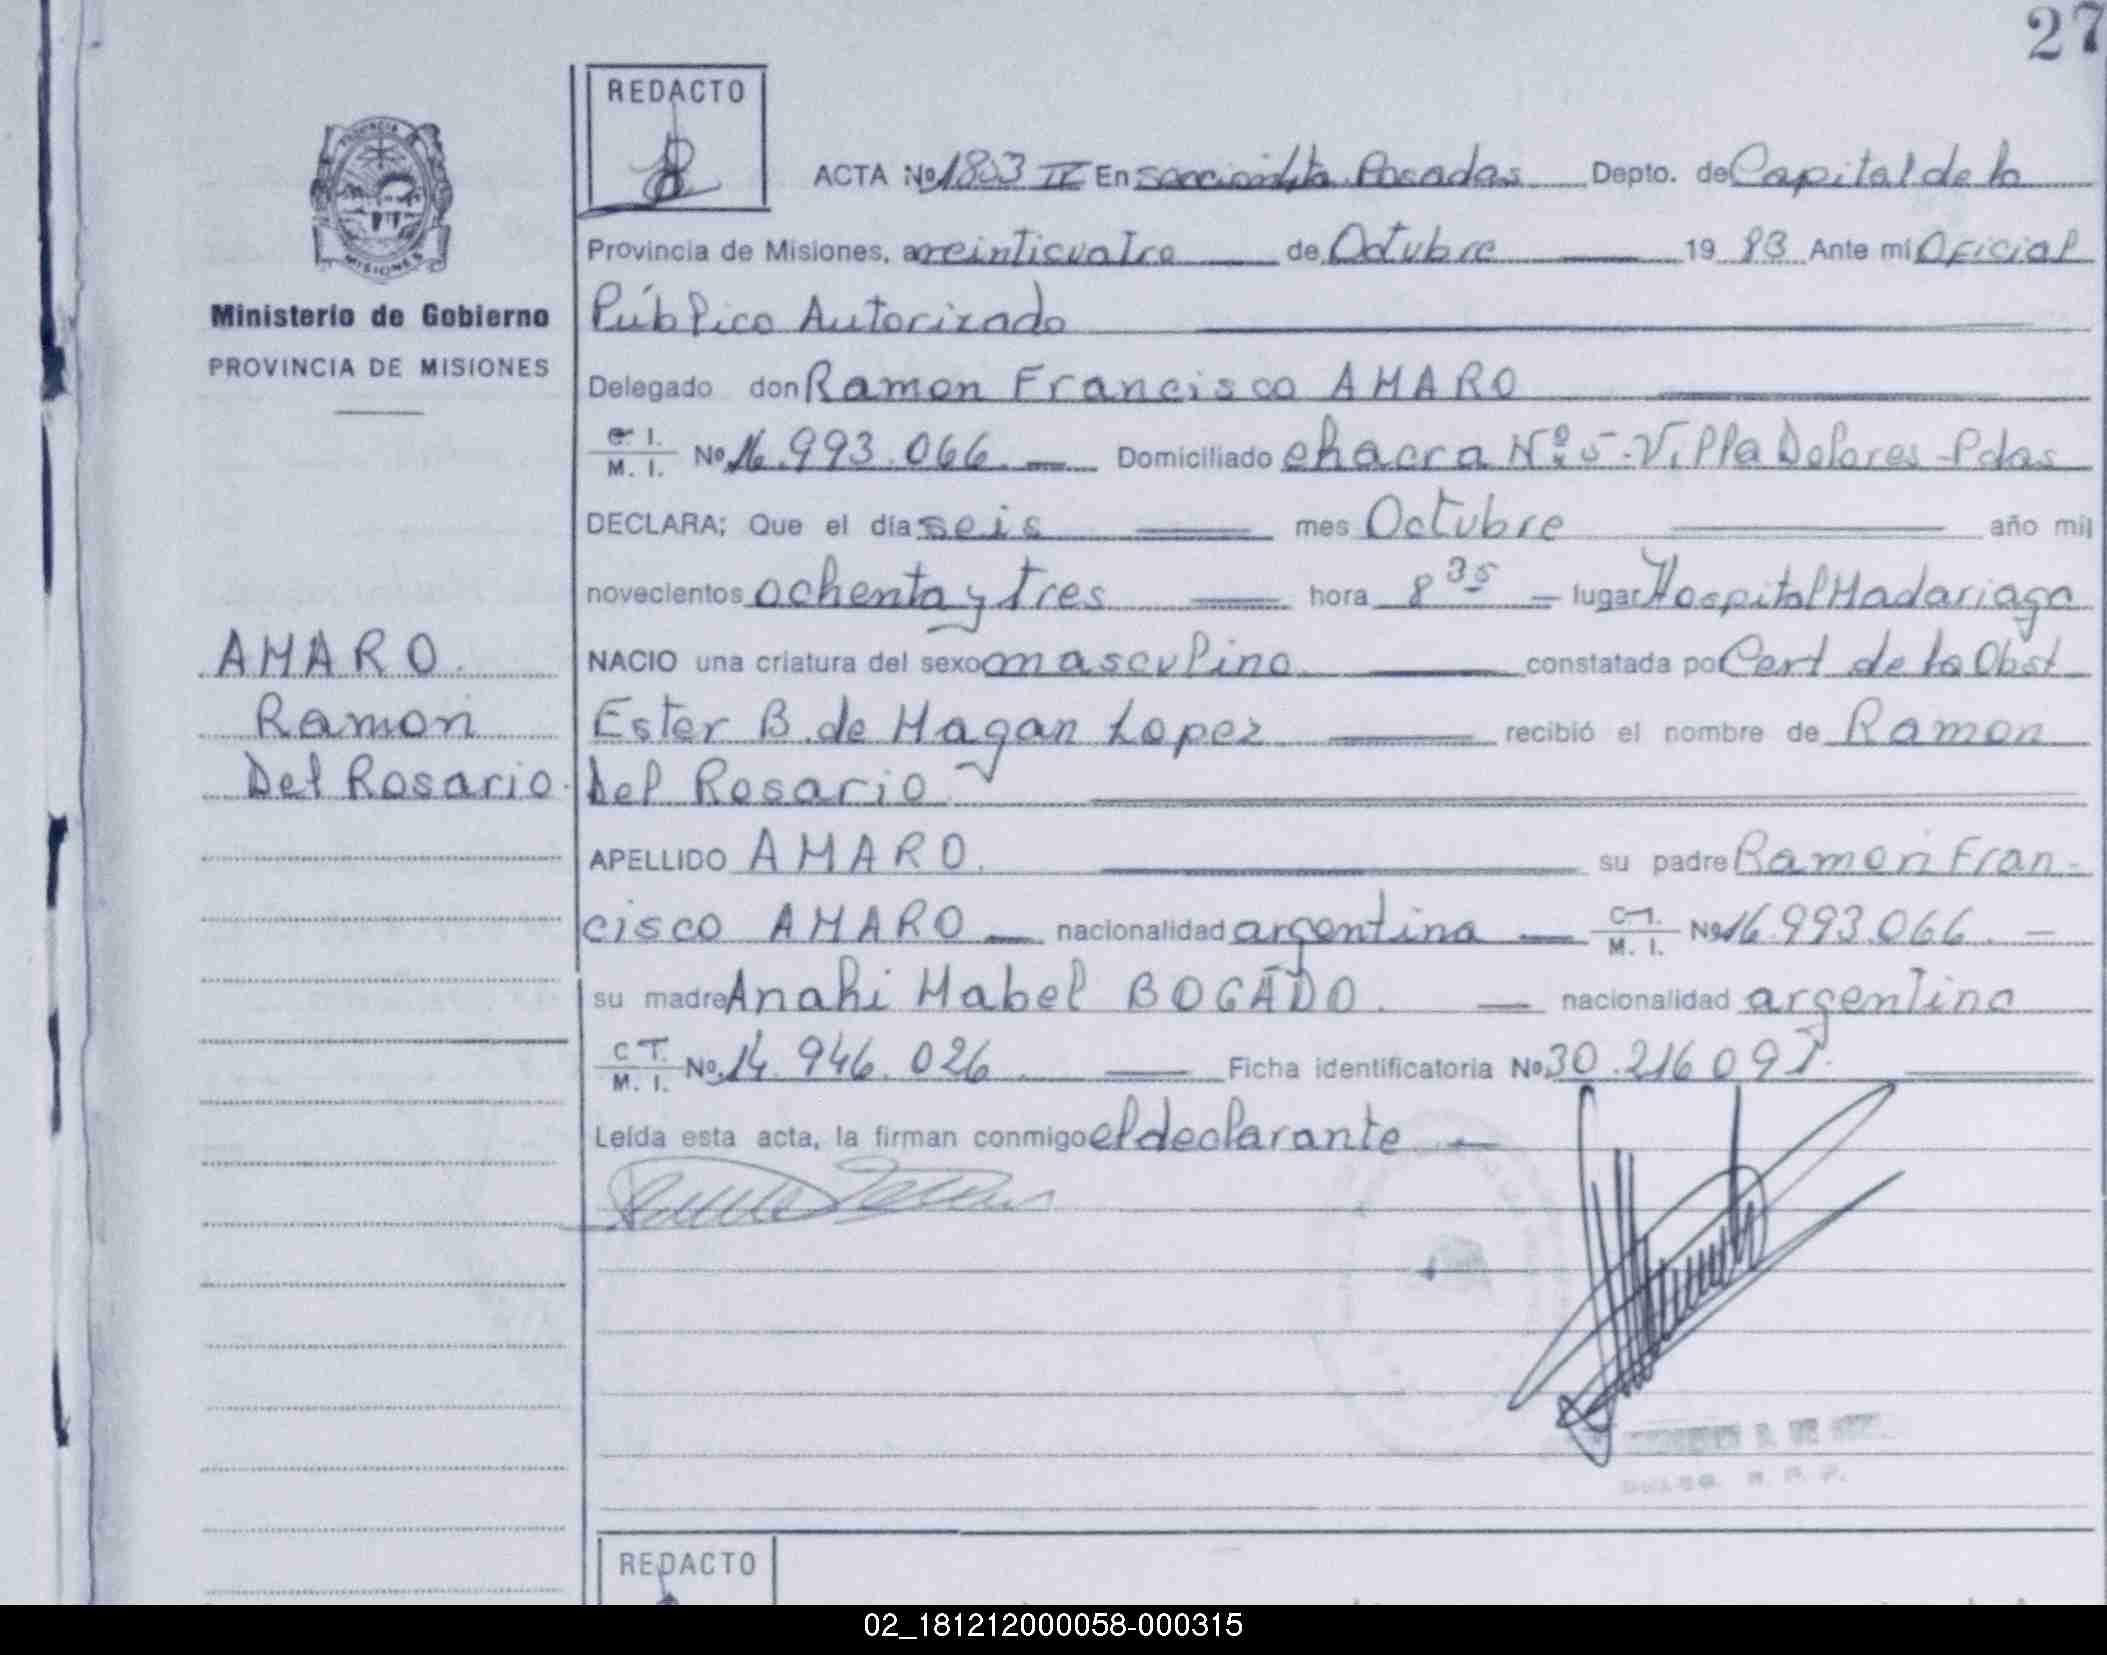 27
REDACTO
ACTA Nº 1803 IV En sección 4ta Posadas Depto. de Capital de la
Provincia de Misiones, a veinticuatro de Octubre 19 83 Ante mí Oficial
Público Autorizado
Ministerio de Gobierno
PROVINCIA DE MISIONES
Delegado don Ramon Francisco AMARO
C. I. / M. I. Nº 16.993.066. Domiciliado chacra Nº 5 - Villa Dolores - Pdas
DECLARA; Que el día seis mes Octubre año mil
novecientos ochenta y tres hora 8 35 lugar Hospital Madariaga
NACIO una criatura del sexo masculino constatada po Cert de la Obst
Ester B. de Magan Lopez recibió el nombre de Ramon
Del Rosario
AMARO.
Ramon
Del Rosario.
APELLIDO AMARO. su padre Ramon Fran-
cisco AMARO nacionalidad argentina C. I. / M. I. Nº 16.993.066.
su madre Anahi Mabel BOGADO. nacionalidad argentina
C. I. / M. I. No. 14.946.026 Ficha identificatoria Nº 30.216.097.
Leída esta acta, la firman conmigo el declarante
REDACTO
02_181212000058-000315